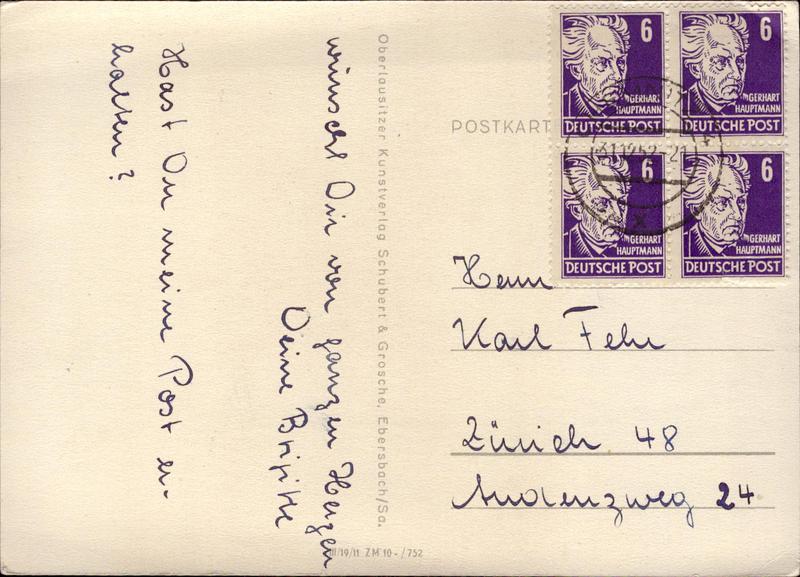 wünscht Dir von ganzen Herzen
Deine Brigitte
Hast Du meine Post er-
halten?
Oberlausitzer Kunstverlag Schubert & Grosche, Ebersbach/Sa.
III/19/11 ZM 10 - /752
POSTKART
6
GERHART
HAUPTMANN
DEUTSCHE POST
6
GERHART
HAUPTMANN
DEUTSCHE POST
6
GERHART
HAUPTMANN
DEUTSCHE POST
6
GERHART
HAUPTMANN
DEUTSCHE POST
31.12.52-21
X
Herrn
Karl Fehr
Zürich 48
24